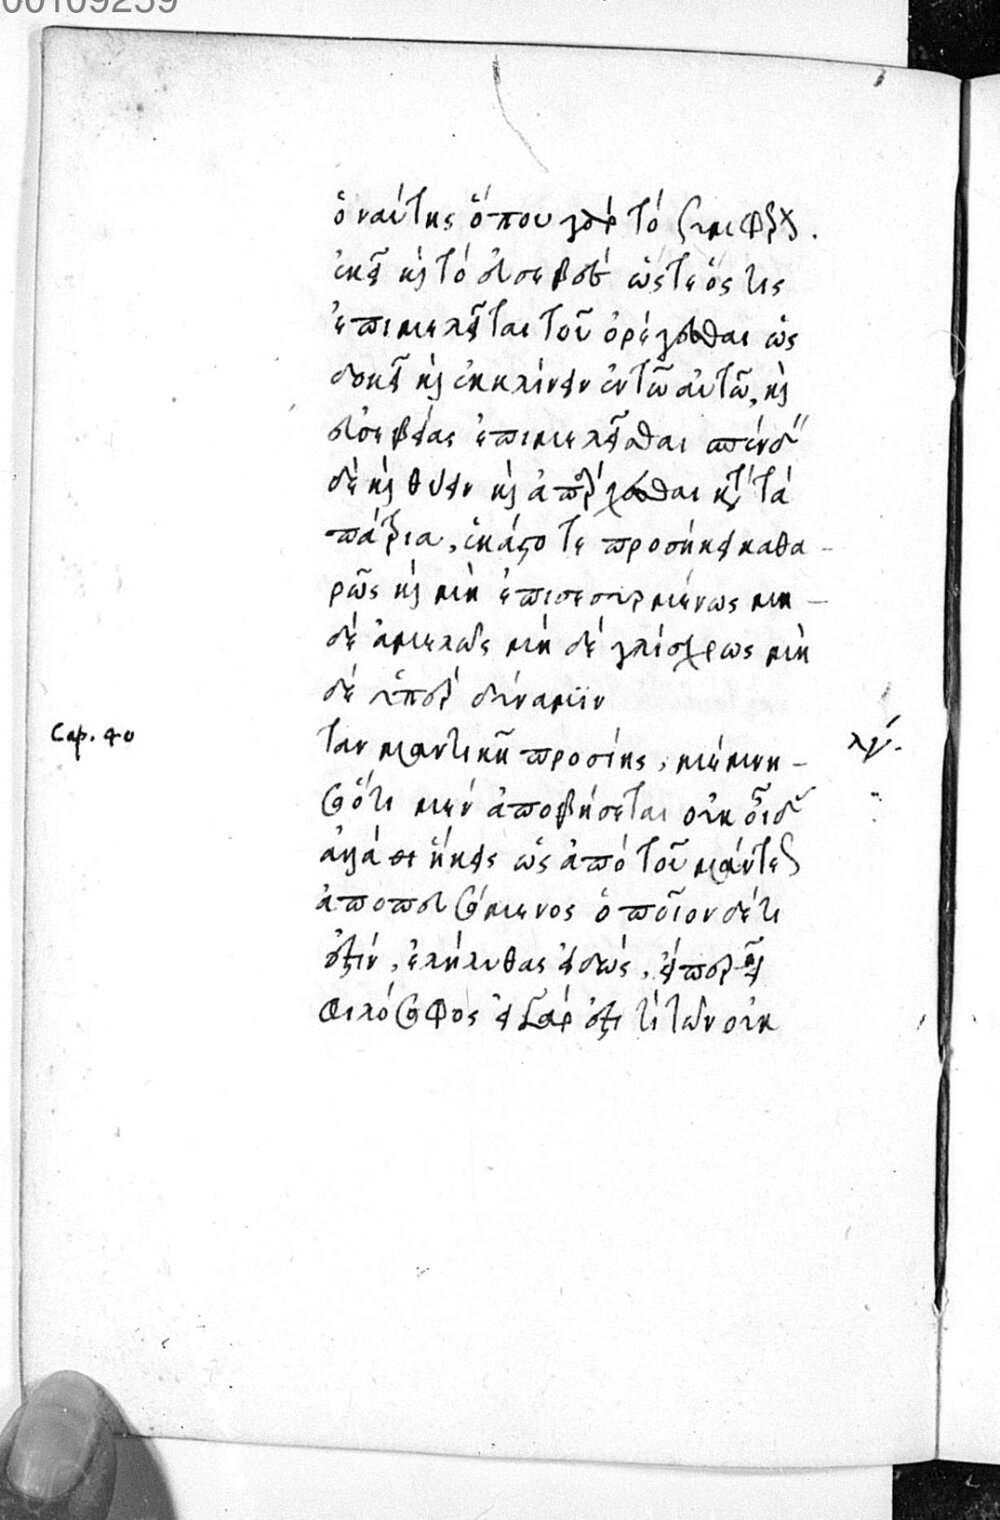 00109259
ὁ ναύτης ὅπου γὰρ τὸ συμφέρον.
ἐκεῖ καὶ τὸ εὐσεβές ὥστε ὅστις
ἐπιμελεῖται τοῦ ὀρέγεσθαι ὡς
δεῖ καὶ ἐκκλίνειν ἐν τῶ αὐτῶ, καὶ
εὐσεβείας ἐπιμελεῖσθαι σπένδειν
δὲ καὶ θύειν καὶ ἀπάρχεσθαι κατὰ τὰ
πάτρια, ἑκάστοτε προσήκει καθα-
ρῶς καὶ μὴ ἐπισεσυρμένως μη-
δὲ ἀμελῶς μὴ δὲ γλίσχρως μὴ
δὲ ὑπὲρ δύναμιν
Cap. 40
λγ.
Ταν μαντικῆ προσίης, μέμνη-
σο ὅτι μὲν ἀποβήσεται οὐκ οἶδας
ἀλλὰ ἥκεις ὡς ἀπὸ τοῦ μάντεως
ἀποπευσόμενος ὁποῖον δέ τι
ἐστίν, ἐλήλυθας εἰδώς, εἴπερ εἶ
φιλόσοφος εἰ γάρ ἐστι τὶ τῶν οὐκ